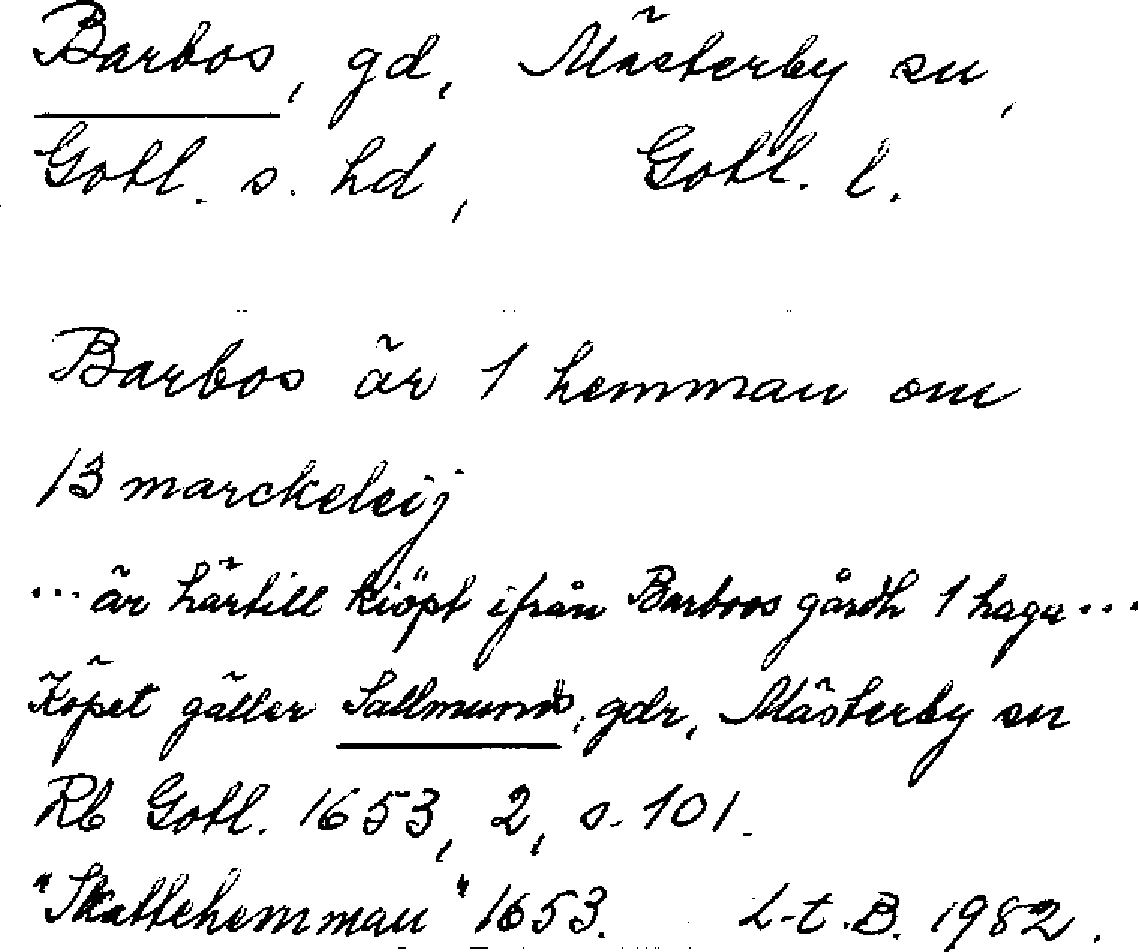 Barbos, gd, Mästerby sn,
Gotl. s. hd, Gotl. l.
Barbos är 1 hemman om
13 marckeleij
... är härtill kiöpt ifrån Barboos gårdh 1 haga...
Köpet gäller Sallmunds, gdr, Mästerby sn
Rb Gotl. 1653, 2, s. 101.
"Skattehemman" 1653. L-t. B. 1982.